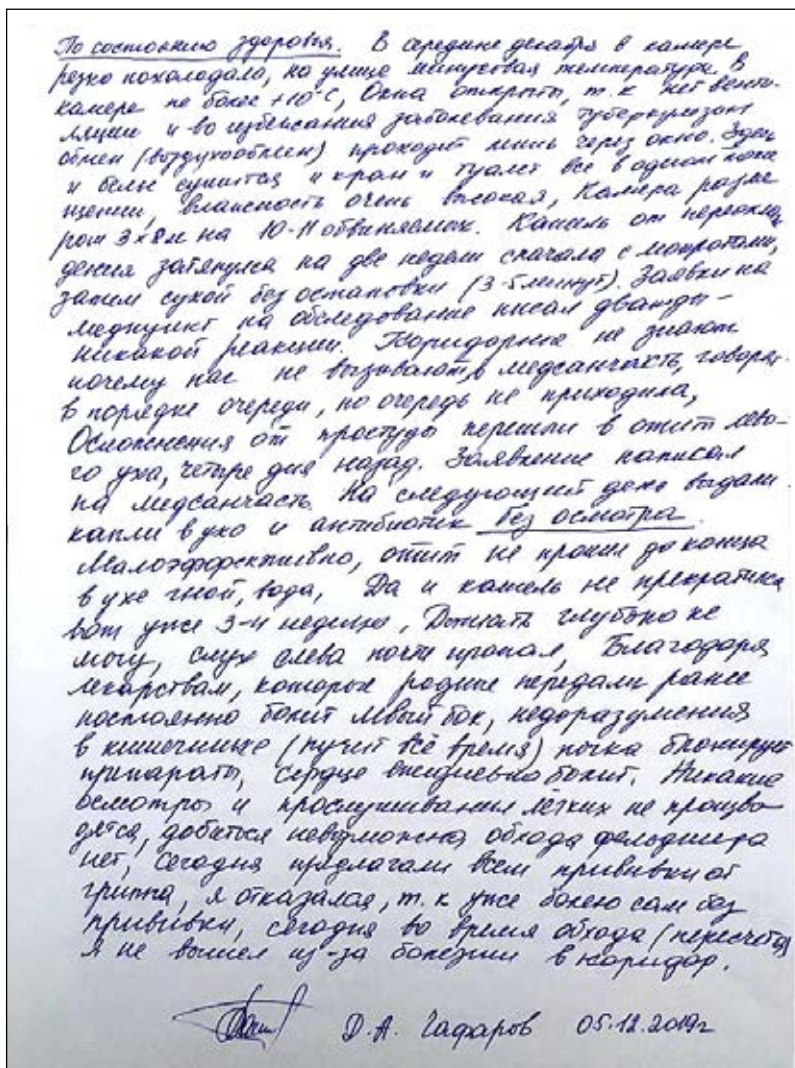 По состоянию здоровья. В середине декабря в камере
резко похолодало, на улице минусовая температура. В
камере не более +10°С, Окна открыты, т.к нет венти-
ляции и во избежания заболевания туберкулезом
обмен (воздухообмен) проходит лишь через окно. Здесь
и белье сушится и кран и туалет все в одном поме
щении, влажность очень высокая, Камера разме
ром 3х8м на 10-11 обвиняемых. Кашель от переохлаж
дения затянулся на две недели сначала с мокротами,
затем сухой без остановки (3-5 минут). Заявки на
медпункт на обследование писал дважды –
никакой реакции. Коридорные не знают
почему нас не вызывают в медсанчасть, говорят
в порядке очереди, но очередь не приходила,
Осложнения от простуды перешли в отит лево-
го уха, четыре дня назад. Заявление написал
на медсанчасть. На следующий день выдали
капли в ухо и антибиотик без осмотра.
Малоэффективно, отит не прошел до конца
в ухе гной, вода, Да и кашель не прекратился
вот уже 3-й неделю, Дышать глубоко не
могу, слух слева почти пропал, Благодаря
лекарствам, которые родные передали ранее
постоянно болит левый бок, недоразумения
в кишечнике (пучит всё время) почка блокирует
препараты, сердце ежедневно болит. Никакие
осмотры и прослушивания лёгких не произво
дятся, добиться невозможно, обхода фельдшера
нет, Сегодня предлагали всем прививки от
гриппа, я отказался, т.к уже болею сам без
прививки, сегодня во время обхода (пересчета)
я не вышел из-за болезни в коридор.
Д.А. Гафаров 05.12.2019г